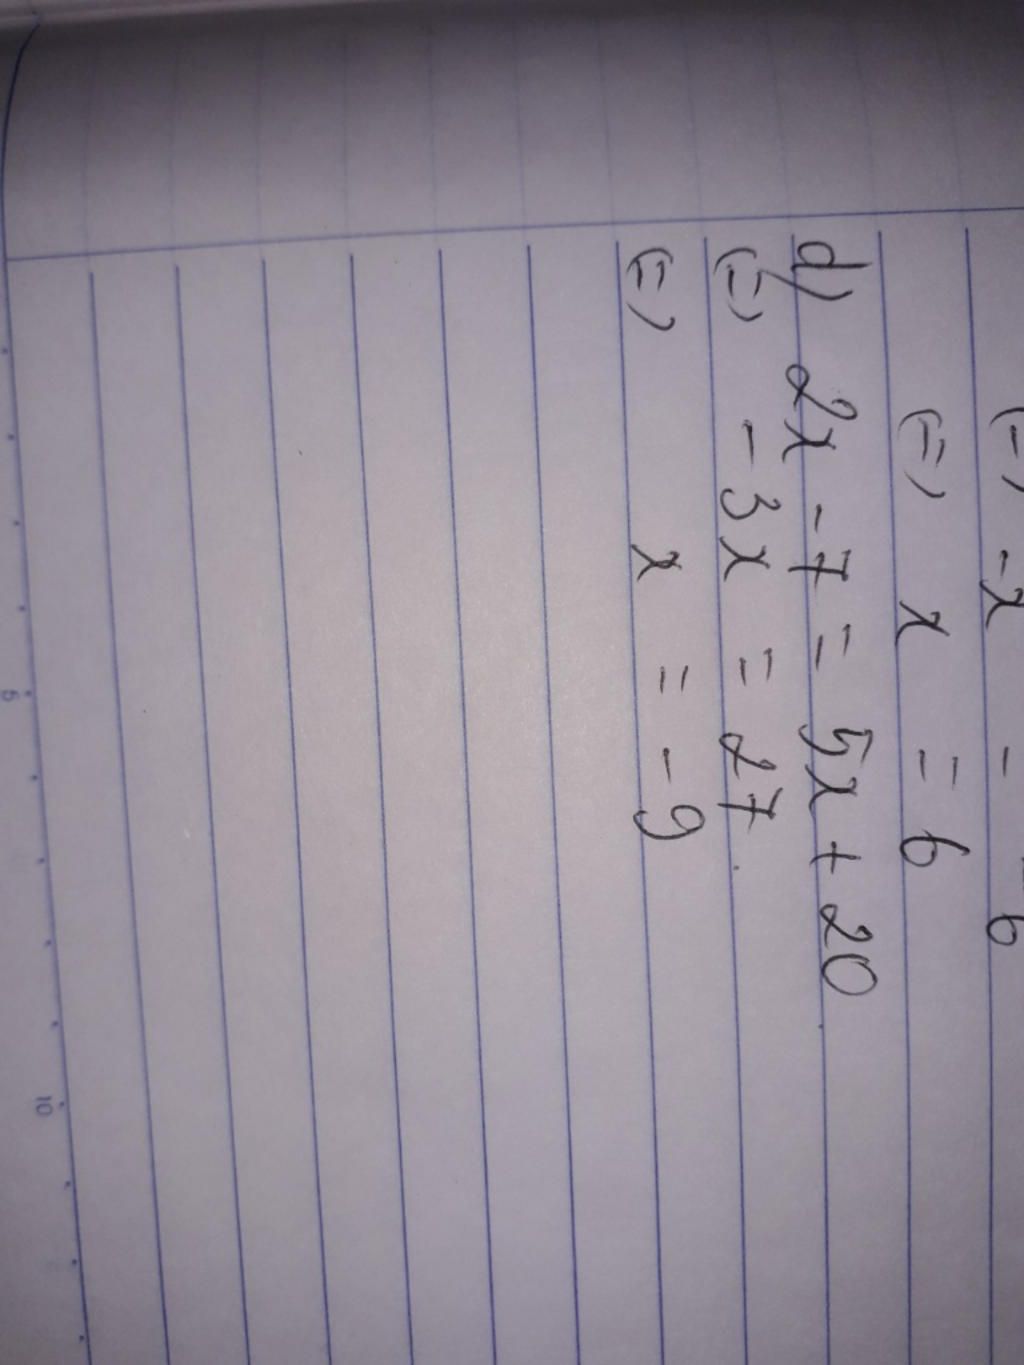 (=) -x = -6
(=) x = 6
d) 2x - 7 = 5x + 20
(=) - 3x = 27
(=) x = - 9
5
10